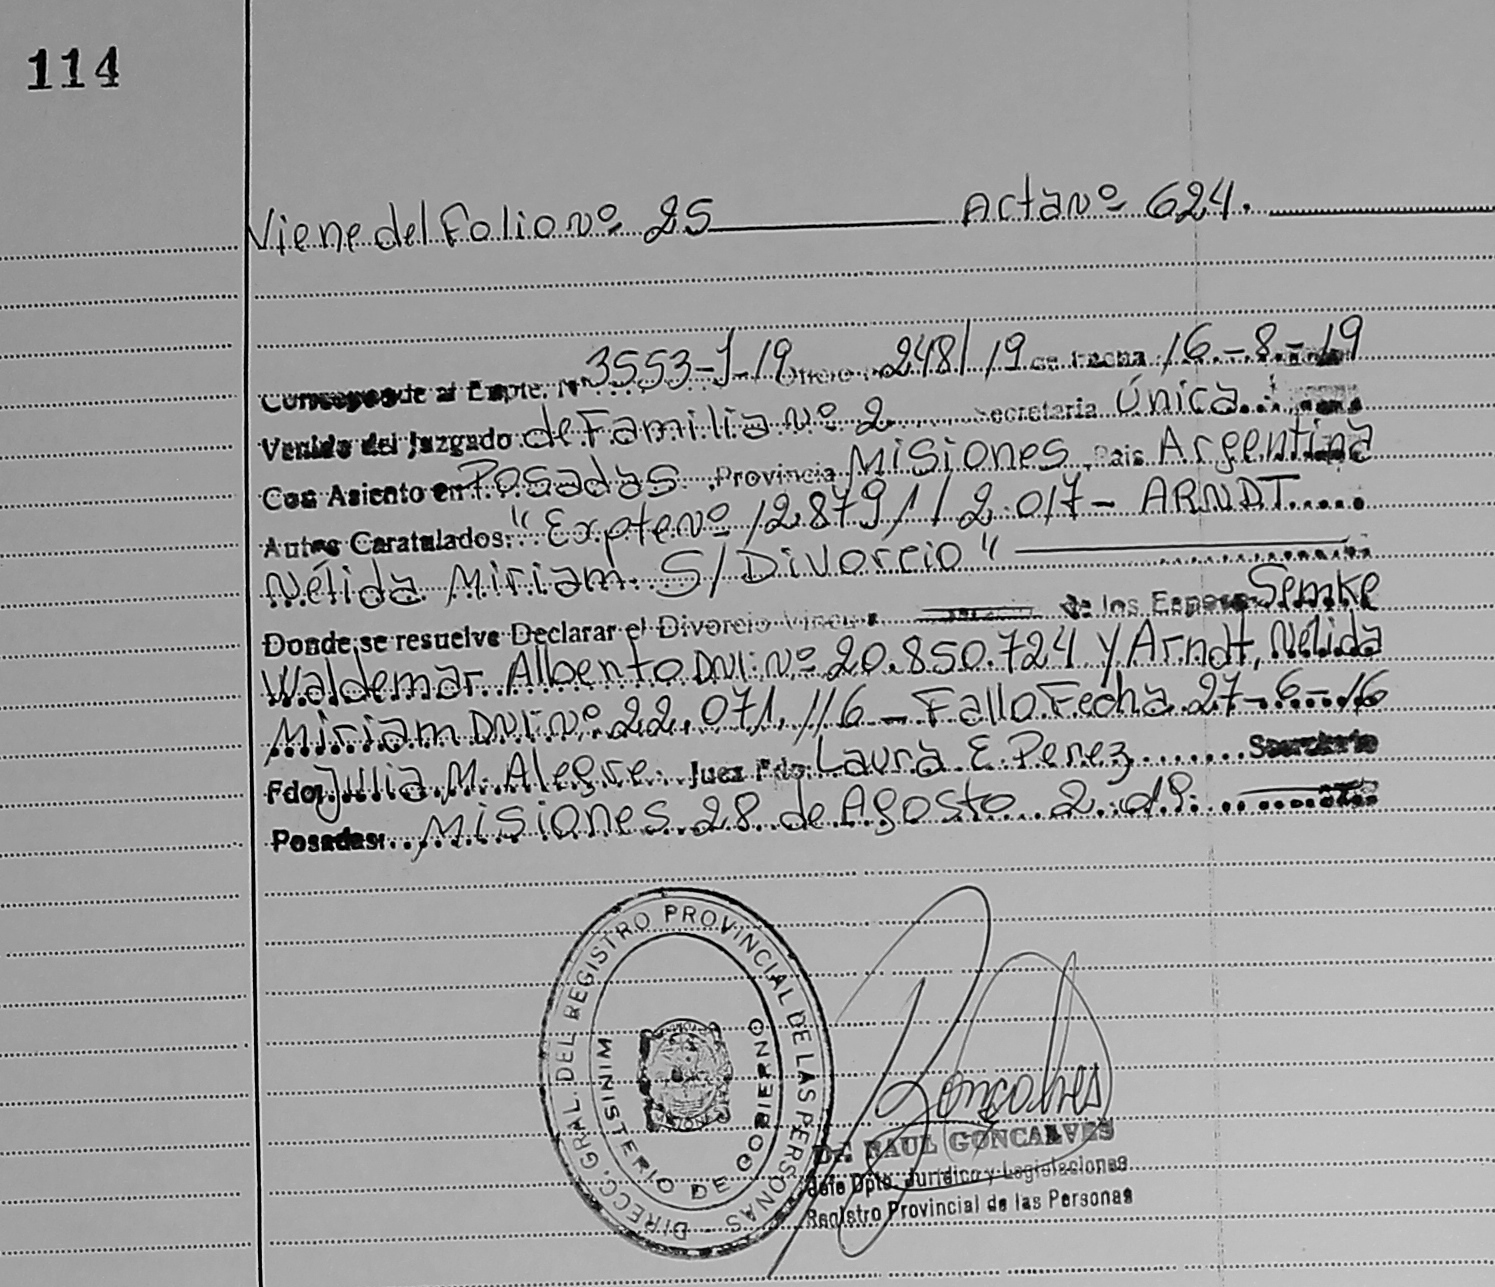 114
Viene del Folio nº 25 Acta nº 624.
Corresponde al Expte. Nº 3553-J-19 Oficio 248/19 de Fecha 16-8-19
Venido del Juzgado de Familia Nº 2 Secretaria Única
Con Asiento en Posadas Provincia Misiones Pais Argentina
Autos Caratulados: "Expte nº 12879/2.017- ARNDT
Nélida Miriam S/Divorcio"
Donde se resuelve Declarar el Divorcio de los Esposos Semke
Waldemar Alberto DNI: Nº 20.850.724 y Arndt, Nélida
Miriam DNI: Nº 22.071.116 - Fallo Fecha 27-6-
Fdo: Julia M. Alegre Juez Fdo: Laura E. Perez Secretario
Posadas: Misiones 28 de Agosto
DIRECC. GRAL. DEL REGISTRO PROVINCIAL DE LAS PERSONAS
MINISTERIO DE GOBIERNO
Goncalves
Dr. RAUL GONCALVES
Jefe Dpto. Jurídico y Legislaciones
Registro Provincial de las Personas